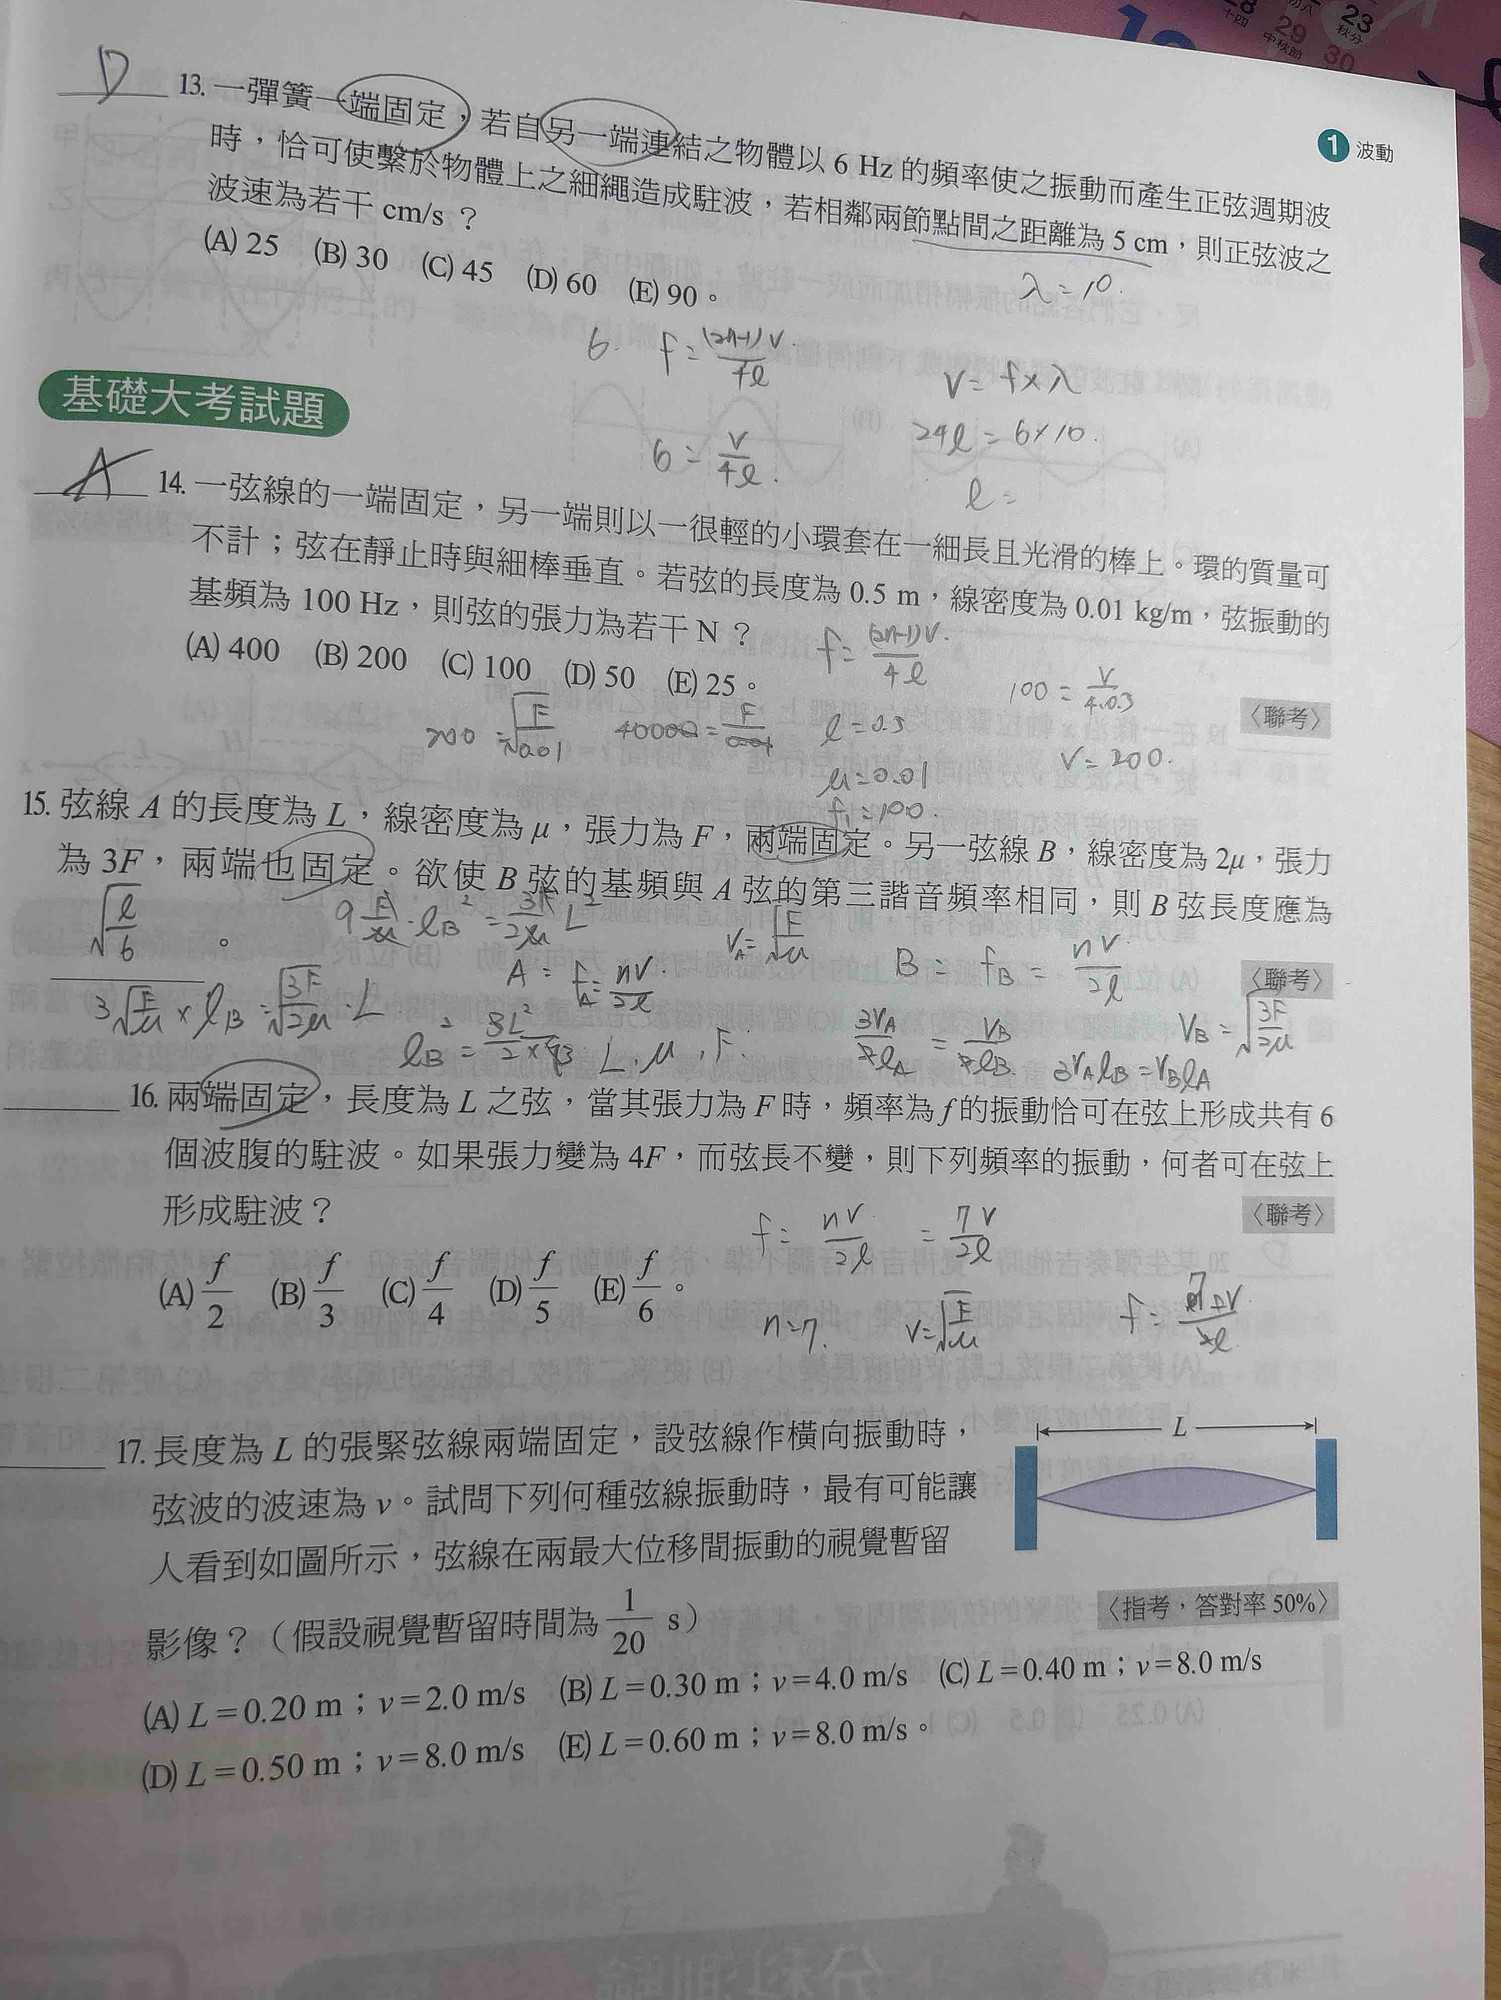 28
十四
29
中秋節
23
秋分
30
1 波動
D 13. 一彈簧一端固定，若自另一端連結之物體以 6 Hz 的頻率使之振動而產生正弦週期波
時，恰可使繫於物體上之細繩造成駐波，若相鄰兩節點間之距離為 5 cm，則正弦波之
波速為若干 cm/s？
(A) 25 (B) 30 (C) 45 (D) 60 (E) 90。
λ = 10.
6. f = (2n-1)V / 4ℓ
V = f × λ
6 = V / 4ℓ.
24ℓ = 6×10.
ℓ =
基礎大考試題
A 14. 一弦線的一端固定，另一端則以一很輕的小環套在一細長且光滑的棒上。環的質量可
不計；弦在靜止時與細棒垂直。若弦的長度為 0.5 m，線密度為 0.01 kg/m，弦振動的
基頻為 100 Hz，則弦的張力為若干 N？
(A) 400 (B) 200 (C) 100 (D) 50 (E) 25。
〈聯考〉
f = (2n-1)V / 4ℓ
100 = V / 4·0.5
200 = √(F / 0.01)
40000 = F / 0.01
ℓ = 0.5
V = 200.
μ = 0.01
f₁ = 100.
15. 弦線 A 的長度為 L，線密度為 μ，張力為 F，兩端固定。另一弦線 B，線密度為 2μ，張力
為 3F，兩端也固定。欲使 B 弦的基頻與 A 弦的第三諧音頻率相同，則 B 弦長度應為
√(ℓ / 6) 。
〈聯考〉
9 F/μ · ℓB² = 3F/2μ L²
VA = √(F / μ)
A = fA = nV / 2ℓ
B = fB = nV / 2ℓ
3√(F/μ) × ℓB = √(3F/2μ) · L
L, μ, F.
3VA / 2ℓA = VB / 2ℓB
VB = √(3F / 2μ)
3VAℓB = VBℓA
16. 兩端固定，長度為 L 之弦，當其張力為 F 時，頻率為 f 的振動恰可在弦上形成共有 6
個波腹的駐波。如果張力變為 4F，而弦長不變，則下列頻率的振動，何者可在弦上
形成駐波？
〈聯考〉
(A) f/2 (B) f/3 (C) f/4 (D) f/5 (E) f/6。
f = nV / 2ℓ = 7V / 2ℓ
n = 7.
V = √(F / μ)
17. 長度為 L 的張緊弦線兩端固定，設弦線作橫向振動時，
弦波的波速為 v。試問下列何種弦線振動時，最有可能讓
人看到如圖所示，弦線在兩最大位移間振動的視覺暫留
影像？（假設視覺暫留時間為 1/20 s）
L
〈指考，答對率 50%〉
(A) L＝0.20 m；v＝2.0 m/s (B) L＝0.30 m；v＝4.0 m/s (C) L＝0.40 m；v＝8.0 m/s
(D) L＝0.50 m；v＝8.0 m/s (E) L＝0.60 m；v＝8.0 m/s。